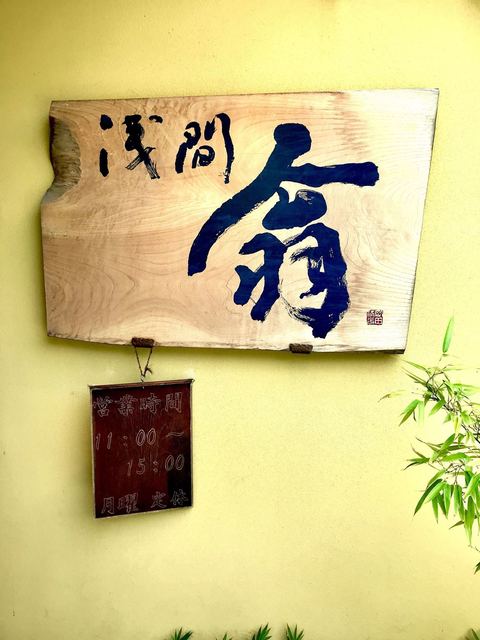 浅間
翁
営業時間
11:00〜
15:00
月曜 定休